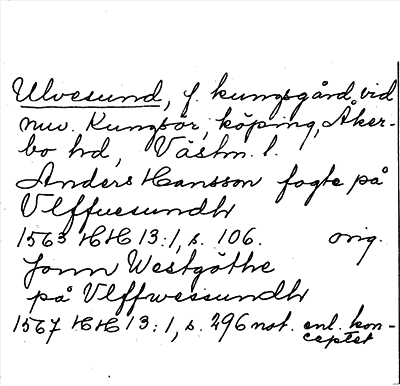 Ulvesund, f. kungsgård vid
nuv. Kungsör, köping, Åker-
bo hd, Västm. l.
Anders Hansson fogte på
Vlffuesundh
1563 HH 13:1, s. 106. orig.
Jonn Westgöthe
på Vlffwessundh
1567 HH 13:1, s. 296 not. enl. kon-
ceptet